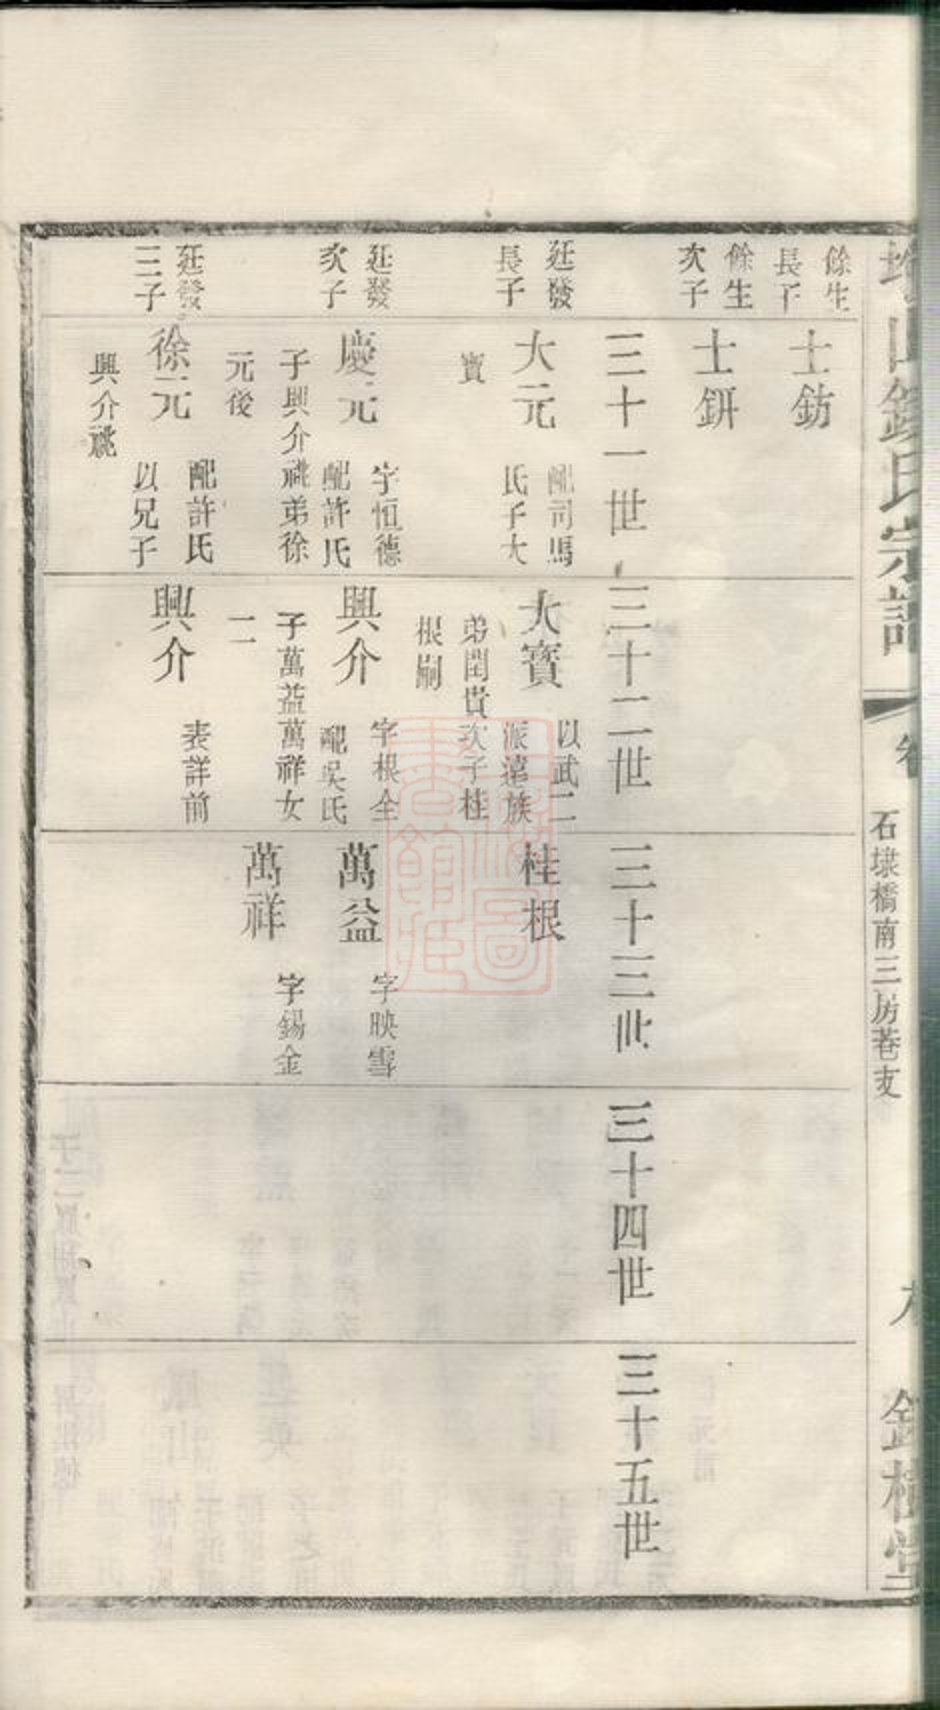 石埭橋南三房巷支
餘生
長子
士鈁
餘生
次子
士鈃
三十一世
三十二世
三十三世
三十四世
三十五世
廷發
長子
大元
配司馬
氏子大
寶
大寶
以武二
派遠族
弟閏貴次子桂
根嗣
桂根
廷發
次子
慶元
字恒德
配許氏
子興介祧弟徐
元後
興介
字根全
配吳氏
子萬益萬祥女
二
萬益
字映雪
萬祥
字錫金
廷發
三子
徐元
配許氏
以兄子
興介祧
興介
表詳前